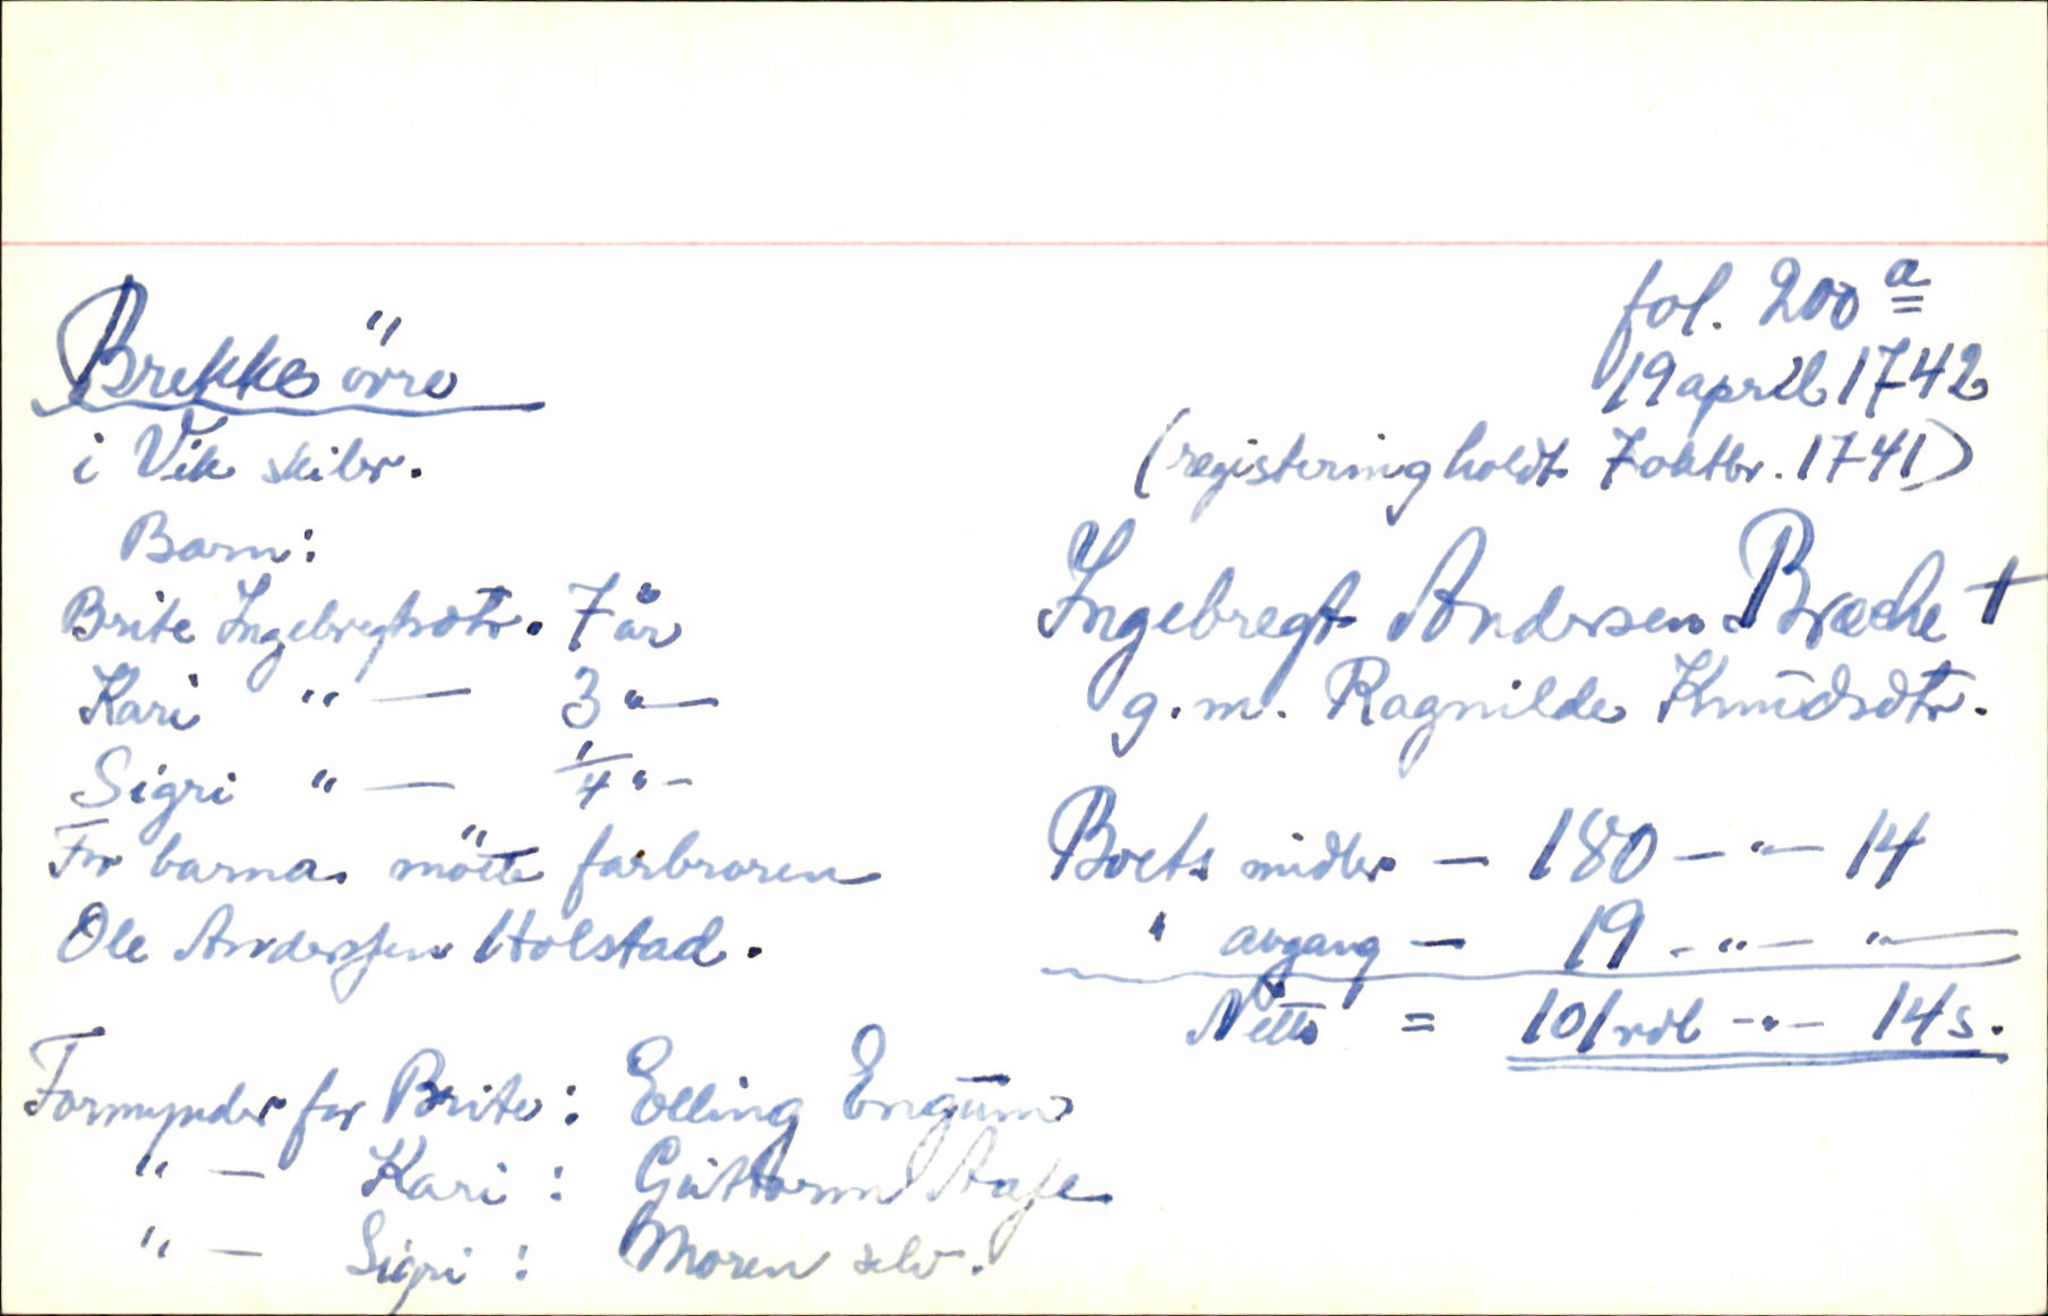 fol. 200 a
Brekke övre
19 april 1742
i Vik skibr.
(registering holdt 7 oktbr. 1741)
Barn:
Ingebregt Andersen Bræche †
Brite Ingebregtsdtr. 7 år
g.m. Ragnilde Knudsdtr.
Kari " — 3 " —
Sigri " — 1/4 " —
Boets midler — 180 — " — 14
For barna mötte farbroren
" avgang — 19 - " — " —
Ole Anderssen Holstad.
Netto = 101 rdl - " — 14 s.
Formynder for Brite: Elling Engum
" — Kari : Guttorm Aase
" — Sigri : Moren selv.